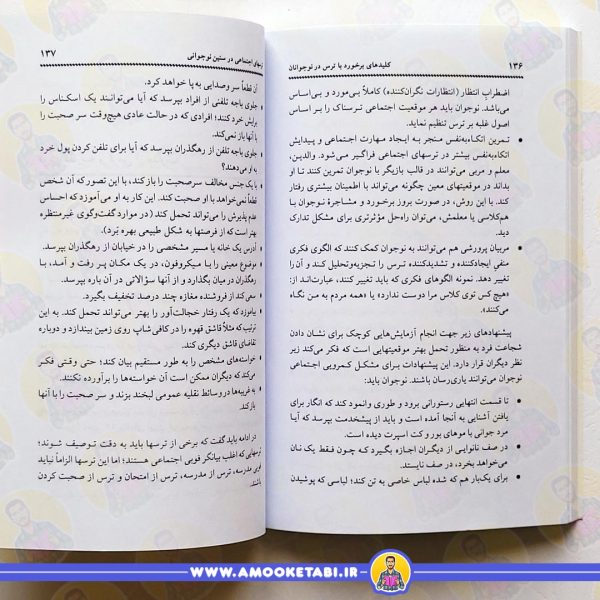 ۱۳۶
کلیدهای برخورد با ترس در نوجوانان
اضطرابِ انتظار (انتظارات نگران‌کننده) کاملاً بی‌مورد و بی‌اساس
می‌باشد. نوجوان باید هر موقعیت اجتماعی ترسناک را بر اساس
اصول غلبه بر ترس تنظیم نماید.
تمرین اتکاءبه‌نفس منجر به ایجاد مهارت اجتماعی و پیدایش
اتکاءبه‌نفس بیشتر در ترسهای اجتماعی فراگیر می‌شود. والدین،
معلم و مربی می‌توانند در قالب بازیگر با نوجوان تمرین کنند تا او
بداند در موقعیتهای معین چگونه می‌تواند با اطمینان بیشتری رفتار
کند. با این روش، در صورت بروز برخورد و مشاجرهٔ نوجوان با
هم‌کلاسی یا معلمش، می‌توان راه‌حل مؤثرتری برای مشکل تدارک
دید.
مربیان پرورشی هم می‌توانند به نوجوان کمک کنند که الگوی فکری
منفیِ ایجادکننده و تشدیدکننده ترس را تجزیه‌وتحلیل کند و آن را
تغییر دهد. نمونه الگوهای فکری که باید تغییر کنند، عبارت‌اند از:
«هیچ کس توی کلاس مرا دوست ندارد» یا «همه مردم به من نگاه
می‌کنند».
پیشنهادهای زیر جهت انجام آزمایش‌هایی کوچک برای نشان دادن
شجاعت فرد به منظور تحمل بهتر موقعیتهایی است که فکر می‌کند زیر
نظر دیگران قرار دارد. این پیشنهادات برای مشکل کمرویی اجتماعی
نوجوان می‌توانند یاری‌رسان باشند. نوجوان باید:
تا قسمت انتهایی رستورانی برود و طوری وانمود کند که انگار برای
یافتن آشنایی به آنجا آمده است و باید از پیشخدمت بپرسد که آیا
مرد جوانی با موهای بور و کت اسپرت دیده است.
در صف نانوایی از دیگران اجازه بگیرد کـه چـون فـقط یک نـان
می‌خواهد بخرد، در صف نایستد.
برای یک‌بار هم که شده لباس خاصی به تن کند؛ لباسی که پوشیدن
ترسهای اجتماعی در سنین نوجوانی
۱۳۷
آن قطعاً سر وصدایی به پا خواهد کرد.
جلوی باجه تلفن از افراد بپرسد که آیا می‌توانند یک اسکناس را
برایش خرد کنند؛ افرادی که در حالت عادی هیچ‌وقت سر صحبت را
با آنها باز نمی‌کند.
جلوی باجه تلفن از رهگذران بپرسد که آیا برای تلفن کردن پول خرد
به او می‌دهند؟
با یک جنس مخالف سرصحبت را باز کند، با این تصور که آن شخص
قطعاً نمی‌خواهد با او صحبت کند. این کار به او می‌آموزد که احساس
عدم پذیرش را می‌تواند تحمل کند (در موارد گفت‌وگوی غیرمنتظره
بهتر است از فرصتهای قبلی به شکل طبیعی بهره بَرد).
آدرس یک خانه یا مسیر مشخصی را در خیابان از رهگذران بپرسد.
موضوع معینی را با میکروفون، در یک مکان پر رفت و آمد، با
رهگذران در میان بگذارد و از آنها سؤالاتی در آن باره بپرسد.
سعی کند از فروشنده مغازه چند درصد تخفیف بگیرد.
بیاموزد که یک رفتار خجالت‌آور را بهتر می‌تواند تحمل کند. به این
ترتیب که مثلاً قاشق قهوه را در کافی شاپ روی زمین بیندازد و دوباره
تقاضای قاشق دیگری کند.
خواسته‌های مشخص را به طور مستقیم بیان کند؛ حتی وقتی فکر
می‌کند که دیگران ممکن است آن خواسته‌ها را برآورده نکنند.
به غریبه‌ها در وسائط نقلیه عمومی لبخند بزند و سر صحبت را با آنها
باز کند.
در ادامه باید گفت که برخی از ترسها باید به دقت توصیف شوند؛
ترسهایی که اغلب بیانگر فوبی اجتماعی هستند؛ اما این ترسها الزاماً نباید
فوبی مدرسه، ترس از مدرسه، ترس از امتحان و ترس از صحبت کردن
باشند.
WWW.AMOOKETABI.IR